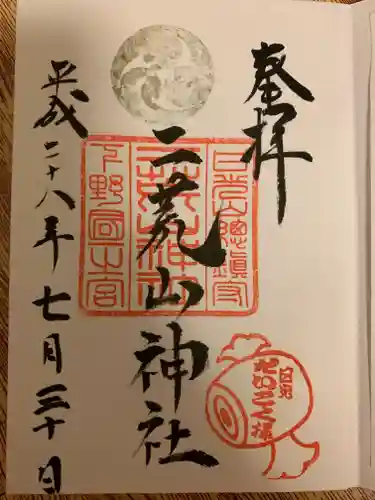 奉拝
日光総鎮守
二荒山神社
下野國一宮
二荒山神社
平成二十八年七月三十日
日光
だいこく様